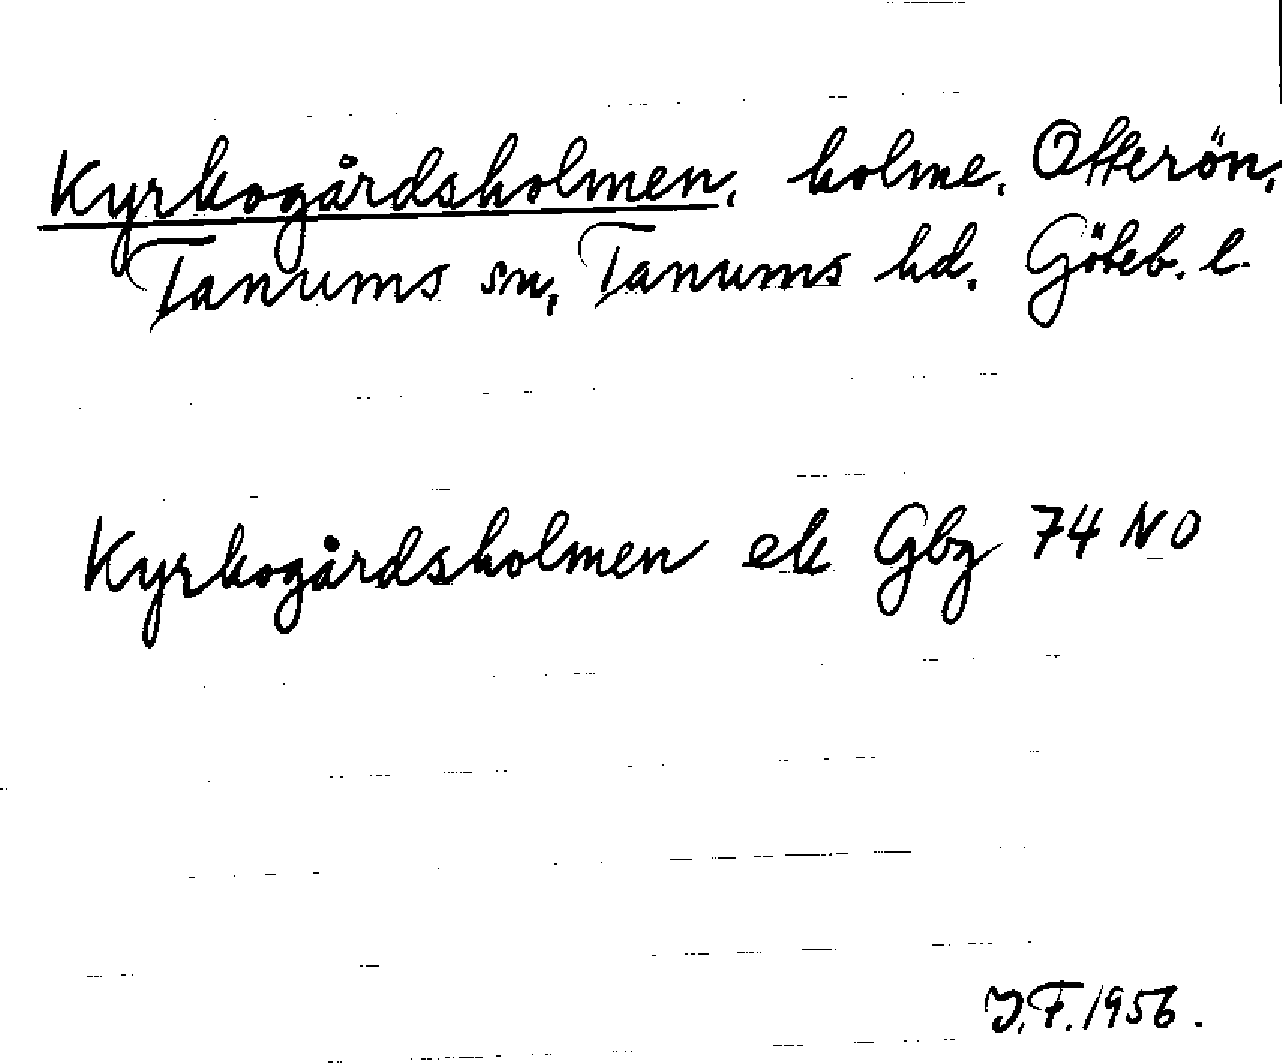 Kyrkogårdsholmen, holme, Otterön,
Tanums sn, Tanums hd. Göteb. l.
Kyrkogårdsholmen ek Gbg 74 NO
J.F. 1956.